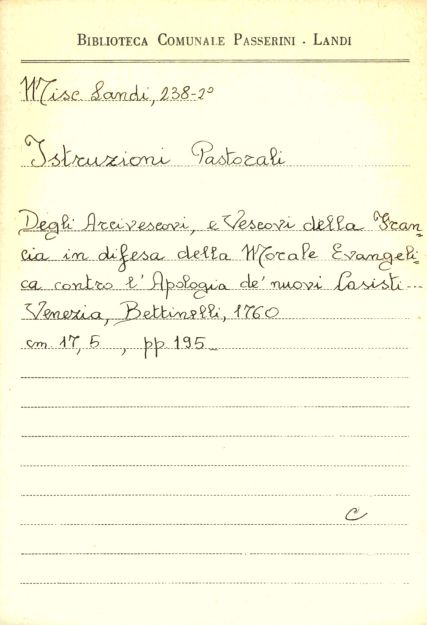 BIBLIOTECA COMUNALE PASSERINI - LANDI
Misc Landi, 238-2°
Istruzioni Pastorali
Degli Arcivescovi, e Vescovi della Fran=
cia in difesa della Morale Evangeli=
ca contro l'Apologia de' nuovi Casisti...
Venezia, Bettinelli, 1760
cm 17,5 , pp 195_
C